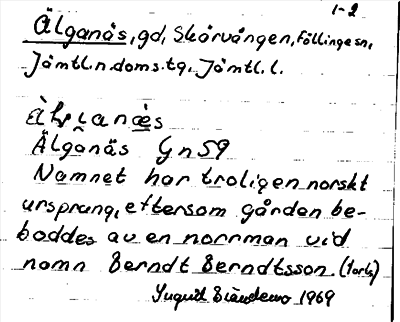 1-2
Älganäs, gd, Skärvången, Föllinge sn,
Jämtl. n. doms. tg, Jämtl. l.
Älganäs Gn 59
Namnet har troligen norskt
ursprung, eftersom gården be-
boddes av en norrman vid
namn Berndt Berndtsson.
1969